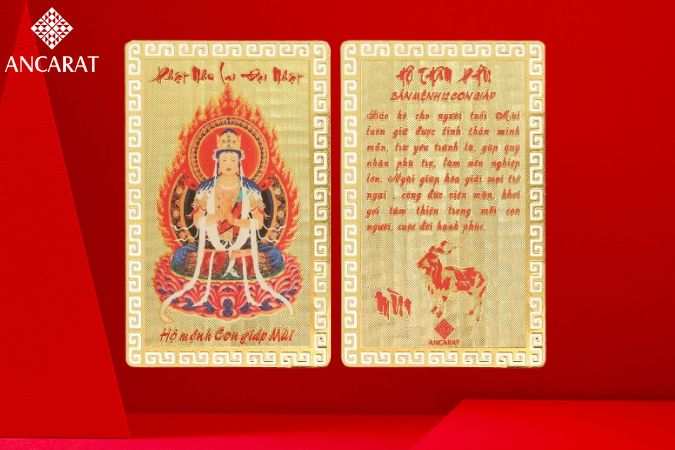 ANCARAT
Phật Như Lai Đại Nhật
Hộ mệnh Con giáp Mùi
HỘ THÂN PHÙ
BẢN MỆNH 12 CON GIÁP
Bảo hộ cho người tuổi Mùi
luôn giữ được tinh thần minh
mẫn, trừ yêu tránh tà, gặp quý
nhân phù trợ, làm nên nghiệp
lớn. Ngài giúp hóa giải mọi trở
ngại, công đức viên mãn, khơi
gợi tâm thiện trong mỗi con
người, cuộc đời hạnh phúc.
Mùi
ANCARAT